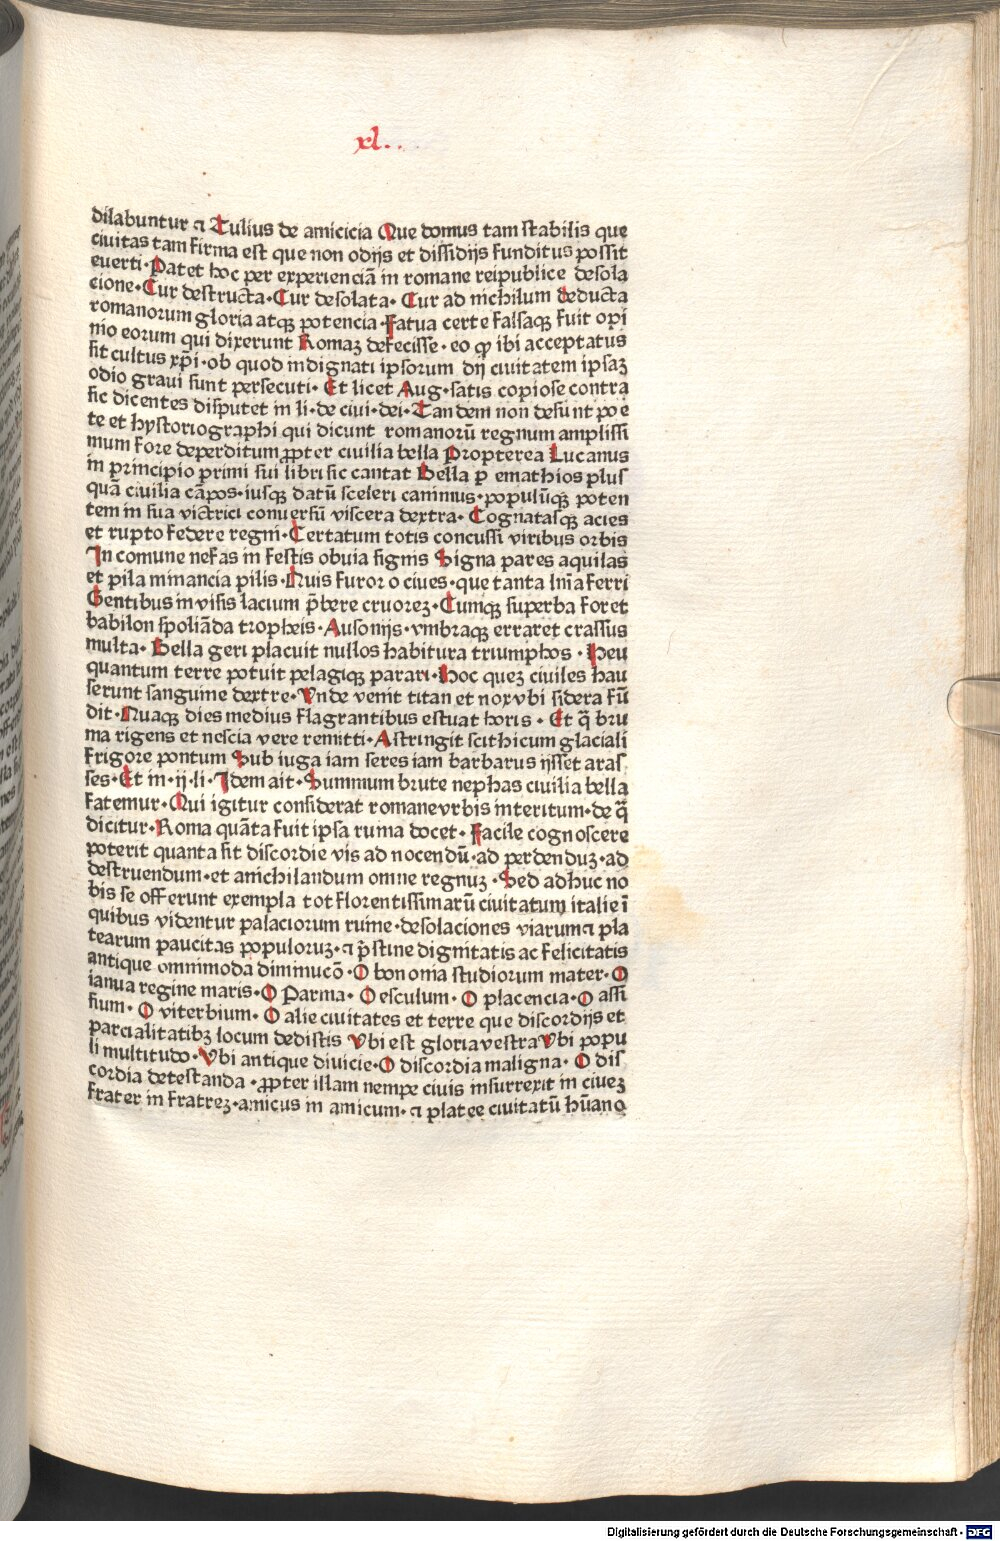 xl..
dilabuntur ⁊ Tulius de amicicia Que domus tam stabilis que
ciuitas tam firma est que non odijs et dissidijs funditus possit
euerti·Patet hoc per experienciā in romane reipublice desola
cione·Cur destructa·Cur desolata·Cur ad nichilum deducta
romanorum gloria atqꝫ potencia·Fatua certe falsaqꝫ fuit opi
nio eorum qui dixerunt Romaꝫ defecisse·eo ꝙ ibi acceptatus
sit cultus xp̄i·ob quod indignati ipsorum dij ciuitatem ipsaꝫ
odio graui sunt persecuti·Et licet Aug·satis copiose contra
sic dicentes disputet in li·de ciui·dei·Tandem non desunt poe
te et hystoriographi qui dicunt romanorū regnum amplissi
mum fore deperditum ꝓpter ciuilia bella Propterea Lucanus
in principio primi sui libri sic cantat Bella p emathios plus
quā ciuilia cāpos·iusqꝫ datū sceleri canimus·populūqꝫ poten
tem in sua victrici conuersū viscera dextra·Cognatasqꝫ acies
et rupto federe regni·Certatum totis concussi viribus orbis
In comune nefas in festis obuia signis Signa pares aquilas
et pila minancia pilis·Quis furor o ciues·que tanta lin̄ia ferri
Gentibus in visis lacium p̄bere cruoreꝫ·Cumqꝫ superba foret
babilon spoliāda tropheis·Ausonijs·vmbraqꝫ erraret crassus
multa·Bella geri placuit nullos habitura triumphos·Heu
quantum terre potuit pelagiqꝫ parari·Hoc queꝫ ciuiles hau
serunt sanguine dextre·Vnde venit titan et nox vbi sidera fū
dit·Quaqꝫ dies medius flagrantibus estuat horis·Et q̄ bru
ma rigens et nescia vere remitti·Astringit scithicum glaciali
frigore pontum Sub iuga iam seres iam barbarus ijsset aras
ses·Et in·ij·li·Idem ait·Summum brute nephas ciuilia bella
fatemur·Qui igitur considerat romane vrbis interitum·de q̄
dicitur·Roma quāta fuit ipsa ruina docet·Facile cognoscere
poterit quanta sit discordie vis ad nocendū·ad perdenduꝫ·ad
destruendum·et anichilandum omne regnuꝫ·Sed adhuc no
bis se offerunt exempla tot florentissimarū ciuitatum italie ī
quibus videntur palaciorum ruine·desolaciones viarum ⁊ pla
tearum paucitas populoruꝫ·⁊ p̄stine dignitatis ac felicitatis
antique omnimoda diminucō·O bononia studiorum mater·O
ianua regine maris·O Parma·O esculum·O placencia·O assi
sium·O viterbium·O alie ciuitates et terre que discordijs et
parcialitatibꝫ locum dedistis Vbi est gloria vestra Vbi popu
li multitudo·Vbi antique diuicie·O discordia maligna·O dis
cordia detestanda·ꝓpter illam nempe ciuis insurrexit in ciueꝫ
frater in fratreꝫ·amicus in amicum·⁊ platee ciuitatū hūano
Digitalisierung gefördert durch die Deutsche Forschungsgemeinschaft - DFG